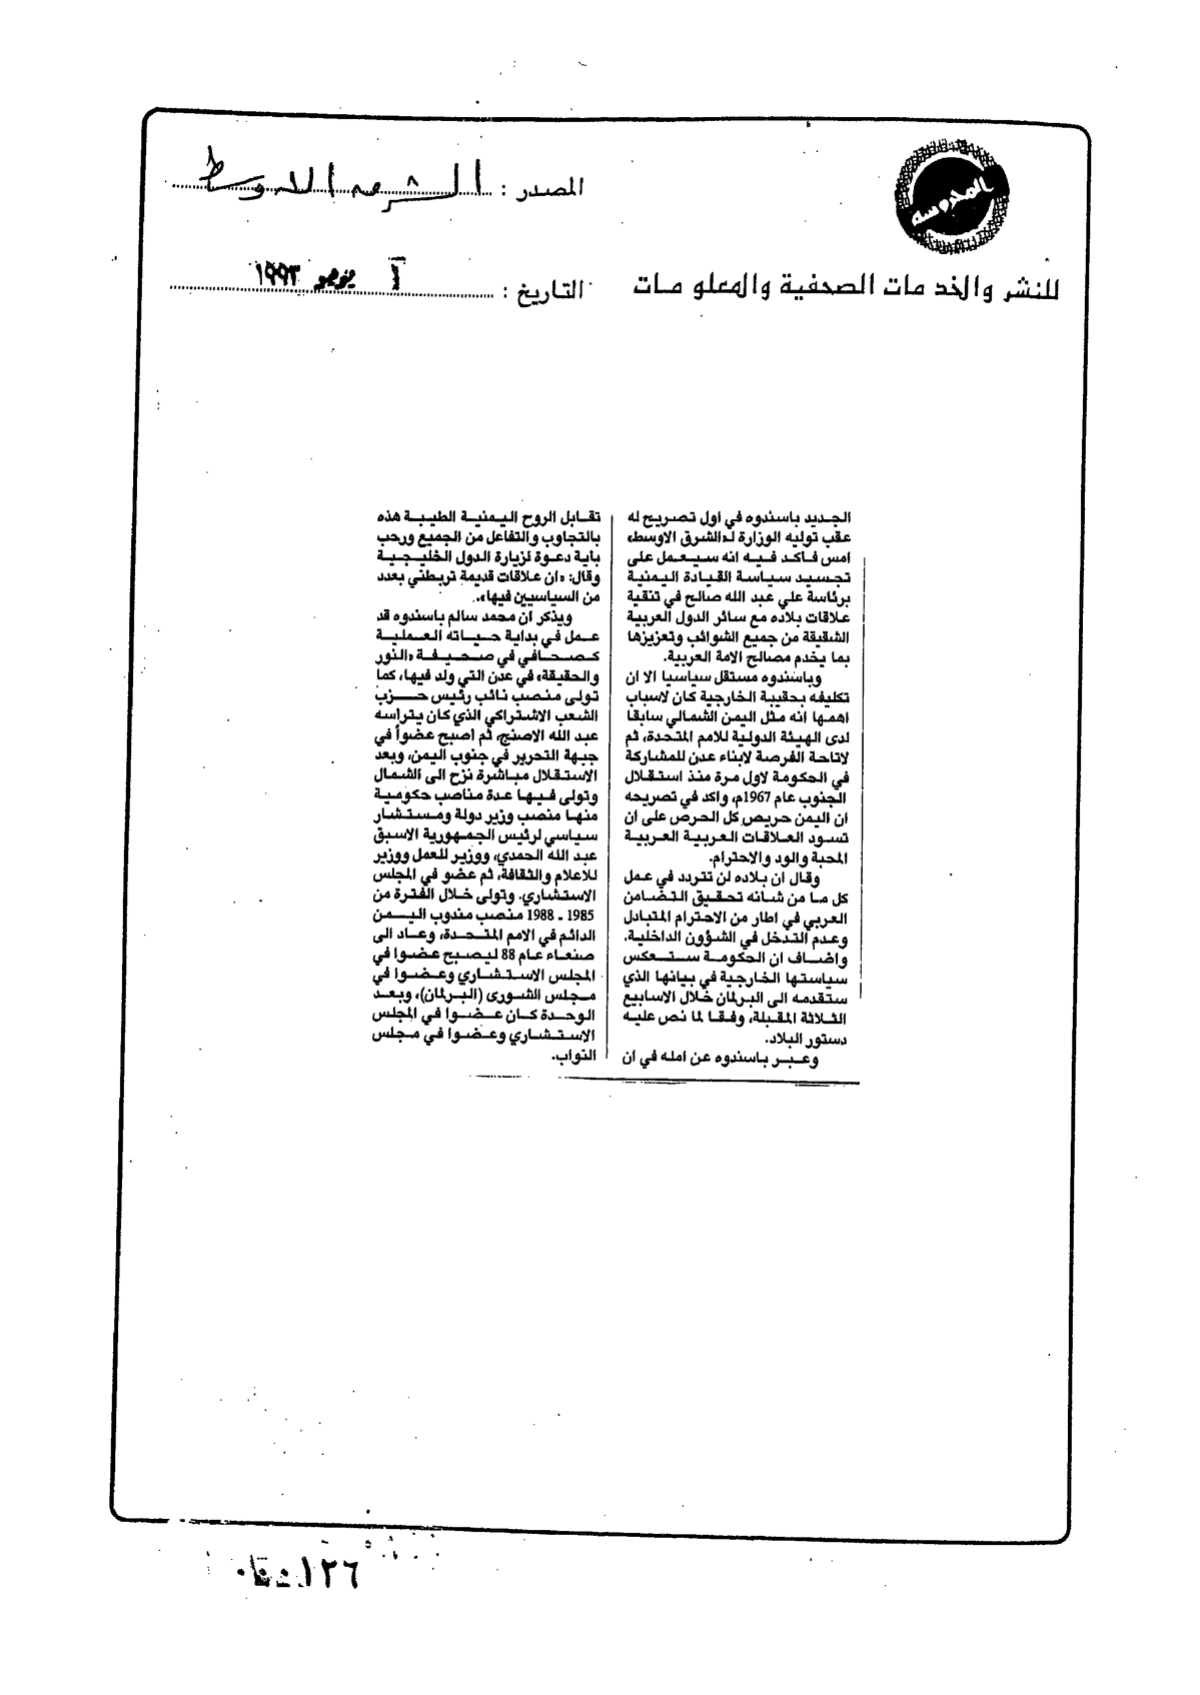 المحروسه
للنشر والخدمات الصحفية والمعلومات
المصدر : الشرق الاوسط
التاريخ : ١ يونيو ١٩٩٣
الجديد باسندوه في اول تصريح له
عقب توليه الوزارة لـ«الشرق الاوسط»
امس فاكد فيه انه سيعمل على
تجسيد سياسة القيادة اليمنية
برئاسة علي عبد الله صالح في تنقية
علاقات بلاده مع سائر الدول العربية
الشقيقة من جميع الشوائب وتعزيزها
بما يخدم مصالح الامة العربية.
وباسندوه مستقل سياسيا الا ان
تكليفه بحقيبة الخارجية كان لاسباب
اهمها انه مثل اليمن الشمالي سابقا
لدى الهيئة الدولية للامم المتحدة، ثم
لاتاحة الفرصة لابناء عدن للمشاركة
في الحكومة لاول مرة منذ استقلال
الجنوب عام 1967م، واكد في تصريحه
ان اليمن حريص كل الحرص على ان
تسود العلاقات العربية العربية
المحبة والود والاحترام.
وقال ان بلاده لن تتردد في عمل
كل ما من شانه تحقيق التضامن
العربي في اطار من الاحترام المتبادل
وعدم التدخل في الشؤون الداخلية.
واضاف ان الحكومة ستعكس
سياستها الخارجية في بيانها الذي
ستقدمه الى البرلمان خلال الاسابيع
الثلاثة المقبلة، وفقا لما نص عليه
دستور البلاد.
وعبر باسندوه عن امله في ان
تقابل الروح اليمنية الطيبة هذه
بالتجاوب والتفاعل من الجميع ورحب
باية دعوة لزيارة الدول الخليجية
وقال: «ان علاقات قديمة تربطني بعدد
من السياسيين فيها».
ويذكر ان محمد سالم باسندوه قد
عمل في بداية حياته العملية
كصحافي في صحيفة «النور
والحقيقة» في عدن التي ولد فيها، كما
تولى منصب نائب رئيس حزب
الشعب الاشتراكي الذي كان يتراسه
عبد الله الاصنج، ثم اصبح عضوا في
جبهة التحرير في جنوب اليمن، وبعد
الاستقلال مباشرة نزح الى الشمال
وتولى فيها عدة مناصب حكومية
منها منصب وزير دولة ومستشار
سياسي لرئيس الجمهورية الاسبق
عبد الله الحمدي، ووزير للعمل ووزير
للاعلام والثقافة، ثم عضو في المجلس
الاستشاري. وتولى خلال الفترة من
1985 ـ 1988 منصب مندوب اليمن
الدائم في الامم المتحدة، وعاد الى
صنعاء عام 88 ليصبح عضوا في
المجلس الاستشاري وعضوا في
مجلس الشورى (البرلمان)، وبعد
الوحدة كان عضوا في المجلس
الاستشاري وعضوا في مجلس
النواب.